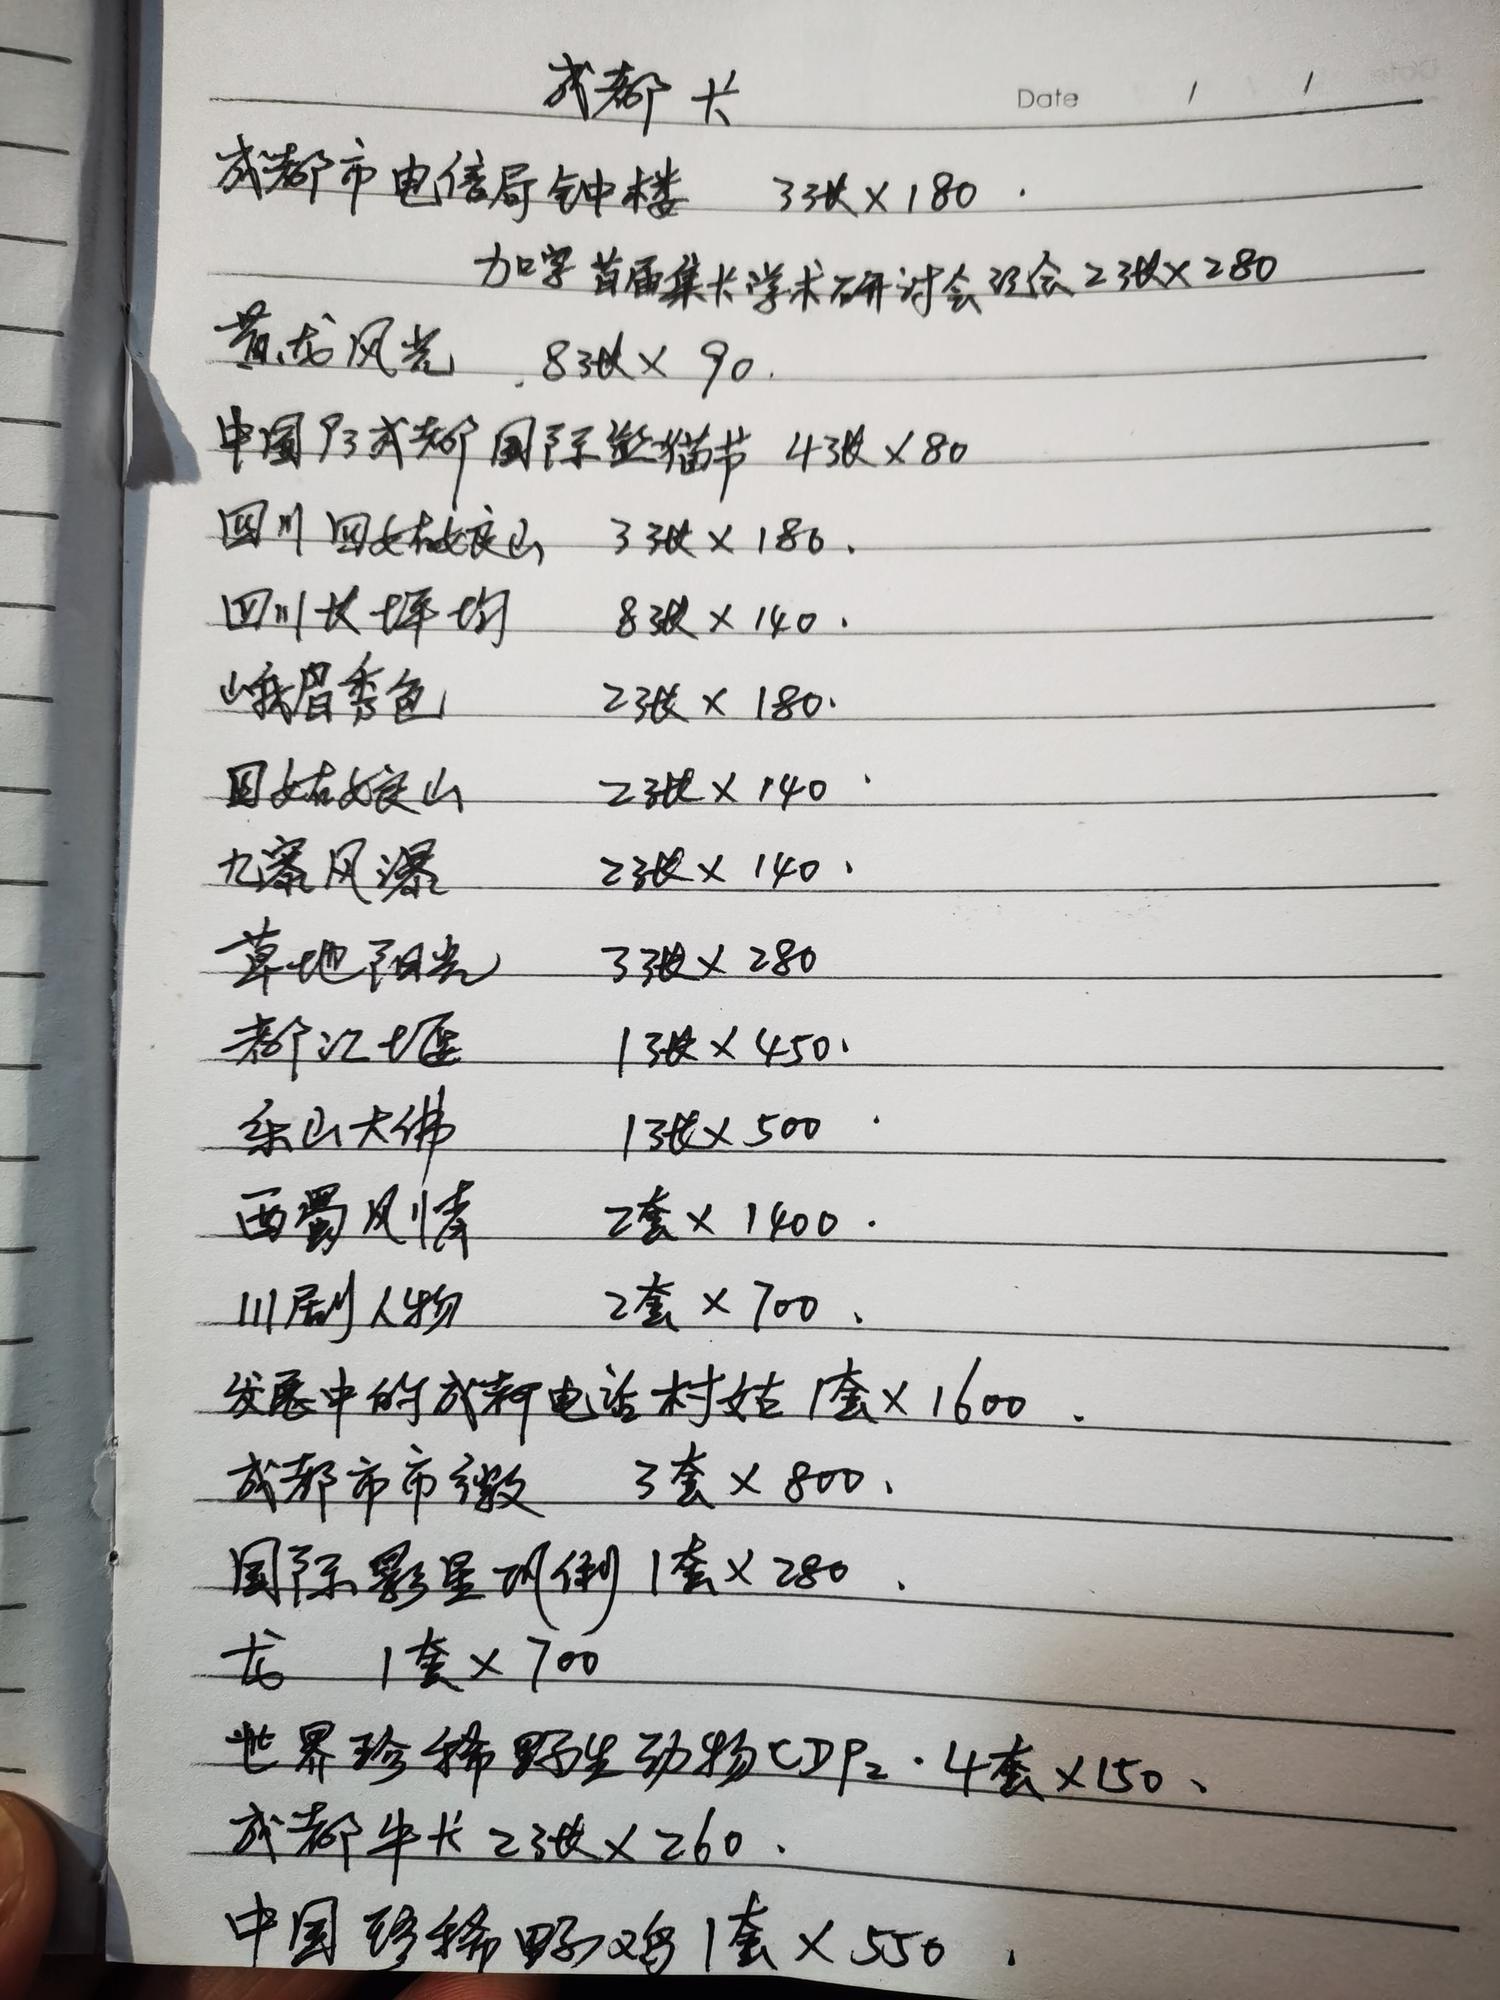 成都卡
Date / /
成都市电信局钟楼 3张×180.
加字首届集卡学术研讨会 2张×280
黄龙风光 8张×90.
中国93成都国际熊猫节 4张×80
四川四姑娘山 3张×180.
四川长坪沟 8张×140.
峨眉秀色 2张×180.
四姑娘山 2张×140.
九寨风瀑 2张×140.
草地阳光 3张×280
都江堰 1张×450.
乐山大佛 1张×500.
西蜀风情 2套×1400.
川剧人物 2套×700.
发展中的成都电话村姑 1套×1600.
成都市市徽 3套×800.
国际影星巩俐 1套×280.
龙 1套×700
世界珍稀野生动物CDP2.4套×150.
成都牛卡 2张×260.
中国珍稀野鸡 1套×550.